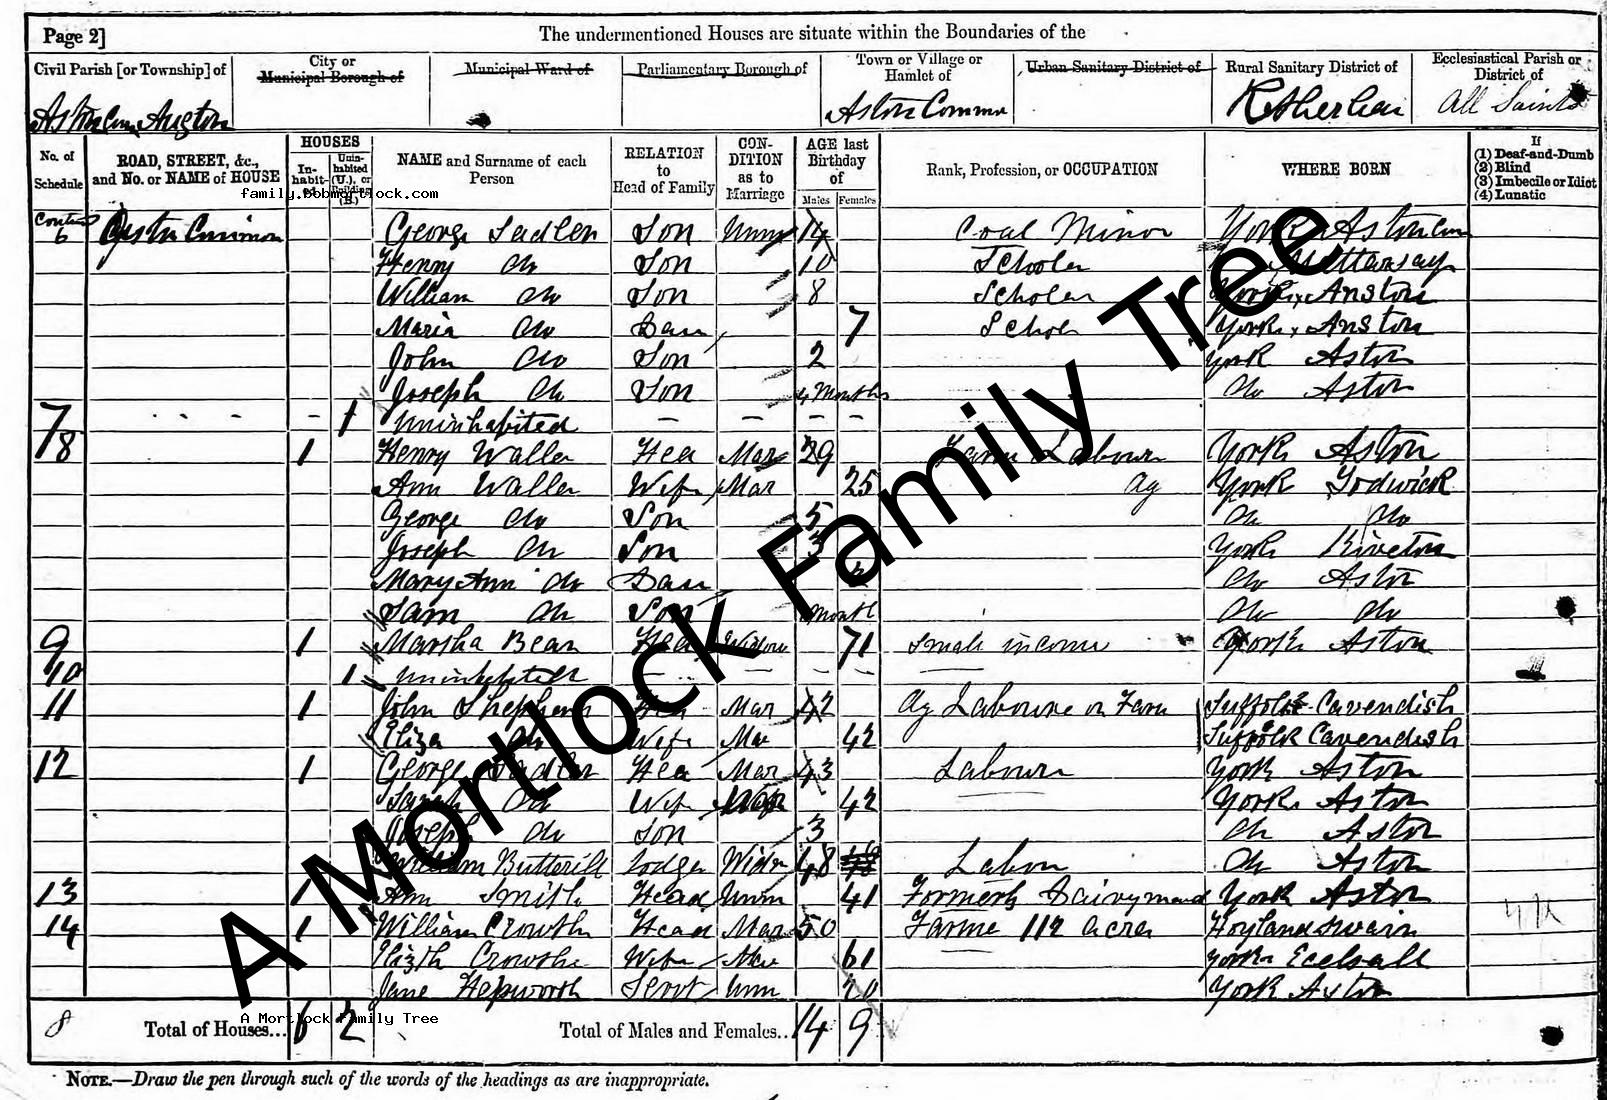 Page 2] The undermentioned Houses are situate within the Boundaries of the
Civil Parish [or Township] of
City or Municipal Borough of
Municipal Ward of
Parliamentary Borough of
Town or Village or Hamlet of
Urban Sanitary District of
Rural Sanitary District of
Ecclesiastical Parish or District of
Aston Common
All Saints
No. of Schedule
ROAD, STREET, &c., and No. or NAME of HOUSE
HOUSES
In-habit-ed
Unin-habited (U.), or Building (B.)
NAME and Surname of each Person
RELATION to Head of Family
CON-DITION as to Marriage
AGE last Birthday of
Males Females
Rank, Profession, or OCCUPATION
WHERE BORN
If
(1) Deaf-and-Dumb
(2) Blind
(3) Imbecile or Idiot
(4) Lunatic
family.bobmortlock.com
6 George Sadler Son Unm 14 Coal Minor York Aston
Henry do Son 10 Scholar
William do Son 8 Scholar York, Anston
Maria do Dau 7 York, Anston
John do Son 2 York Aston
Joseph do Son 4 Months do Aston
7 - 1 Uninhabited - - - -
8 1 Henry Waller Hea Mar 29 Farm Labour York Aston
Ann Waller Wife Mar 25 Ag York Todwick
George do Son 5 do do
Joseph do Son 3 York Kiveton
Mary Ann do Dau do Aston
Sam do Son Month do do
9 1 Hea Widow 71 small income York Aston
10 1
11 1 John Mar 42 Ag Laboure on Farm Suffolk Cavendish
Eliza do Wife Mar 42 Suffolk Cavendish
12 1 George Sadler Hea Mar 43 Labour York Aston
Sarah do Wife 42 York Aston
Joseph do Son 3 do Aston
William Butterill Lodger Wider 48 Labour do Aston
13 1 Ann Smith Head Unm 41 Formerly Dairymaid York Aston
14 1 William Crowther Head Mar 50 Farme 112 Acres Hoylandswain
Elizth Crowther Wife Mar 61 York Ecclsall
Jane Hepworth Servt Unm York Aston
8 Total of Houses... 6 2 Total of Males and Females... 14 9
A Mortlock Family Tree
A Mortlock Family Tree
NOTE.—Draw the pen through such of the words of the headings as are inappropriate.